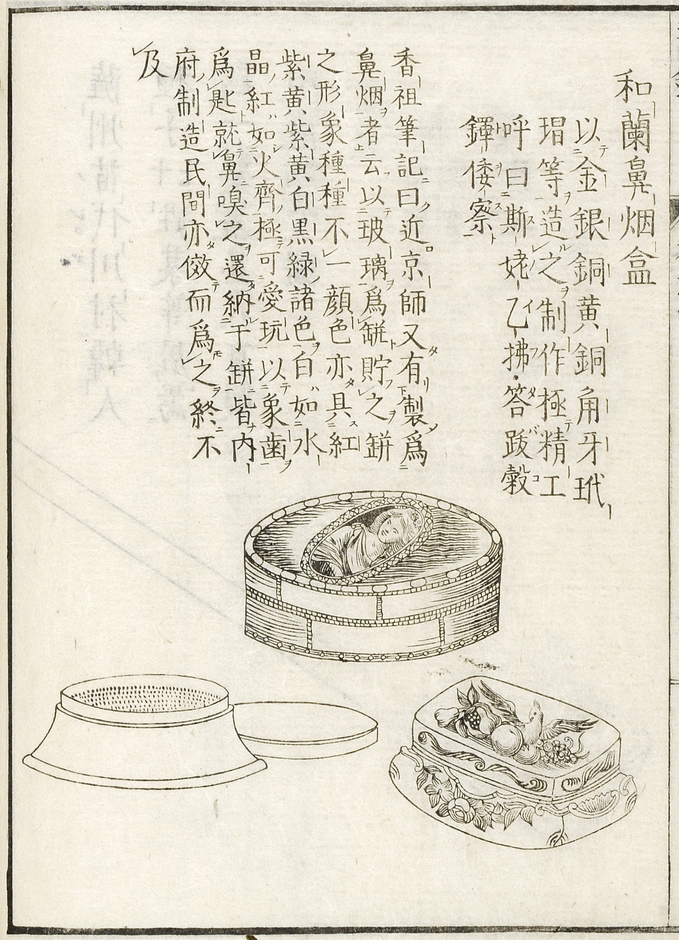 和蘭鼻烟盒
以金銀銅黄銅角牙玳
瑁等造之制作極精工
呼曰斯姥乙拂答跋穀
鐸倭察
香祖筆記曰近京師又有製爲
鼻烟者云以玻璃爲缾貯之缾
之形象種種不一顔色亦具紅
紫黄紫黄白黒緑諸色白如水
晶紅如火齊極可愛玩以象歯
爲匙就鼻嗅之還納于缾皆内
府制造民間亦倣而爲之終不
及